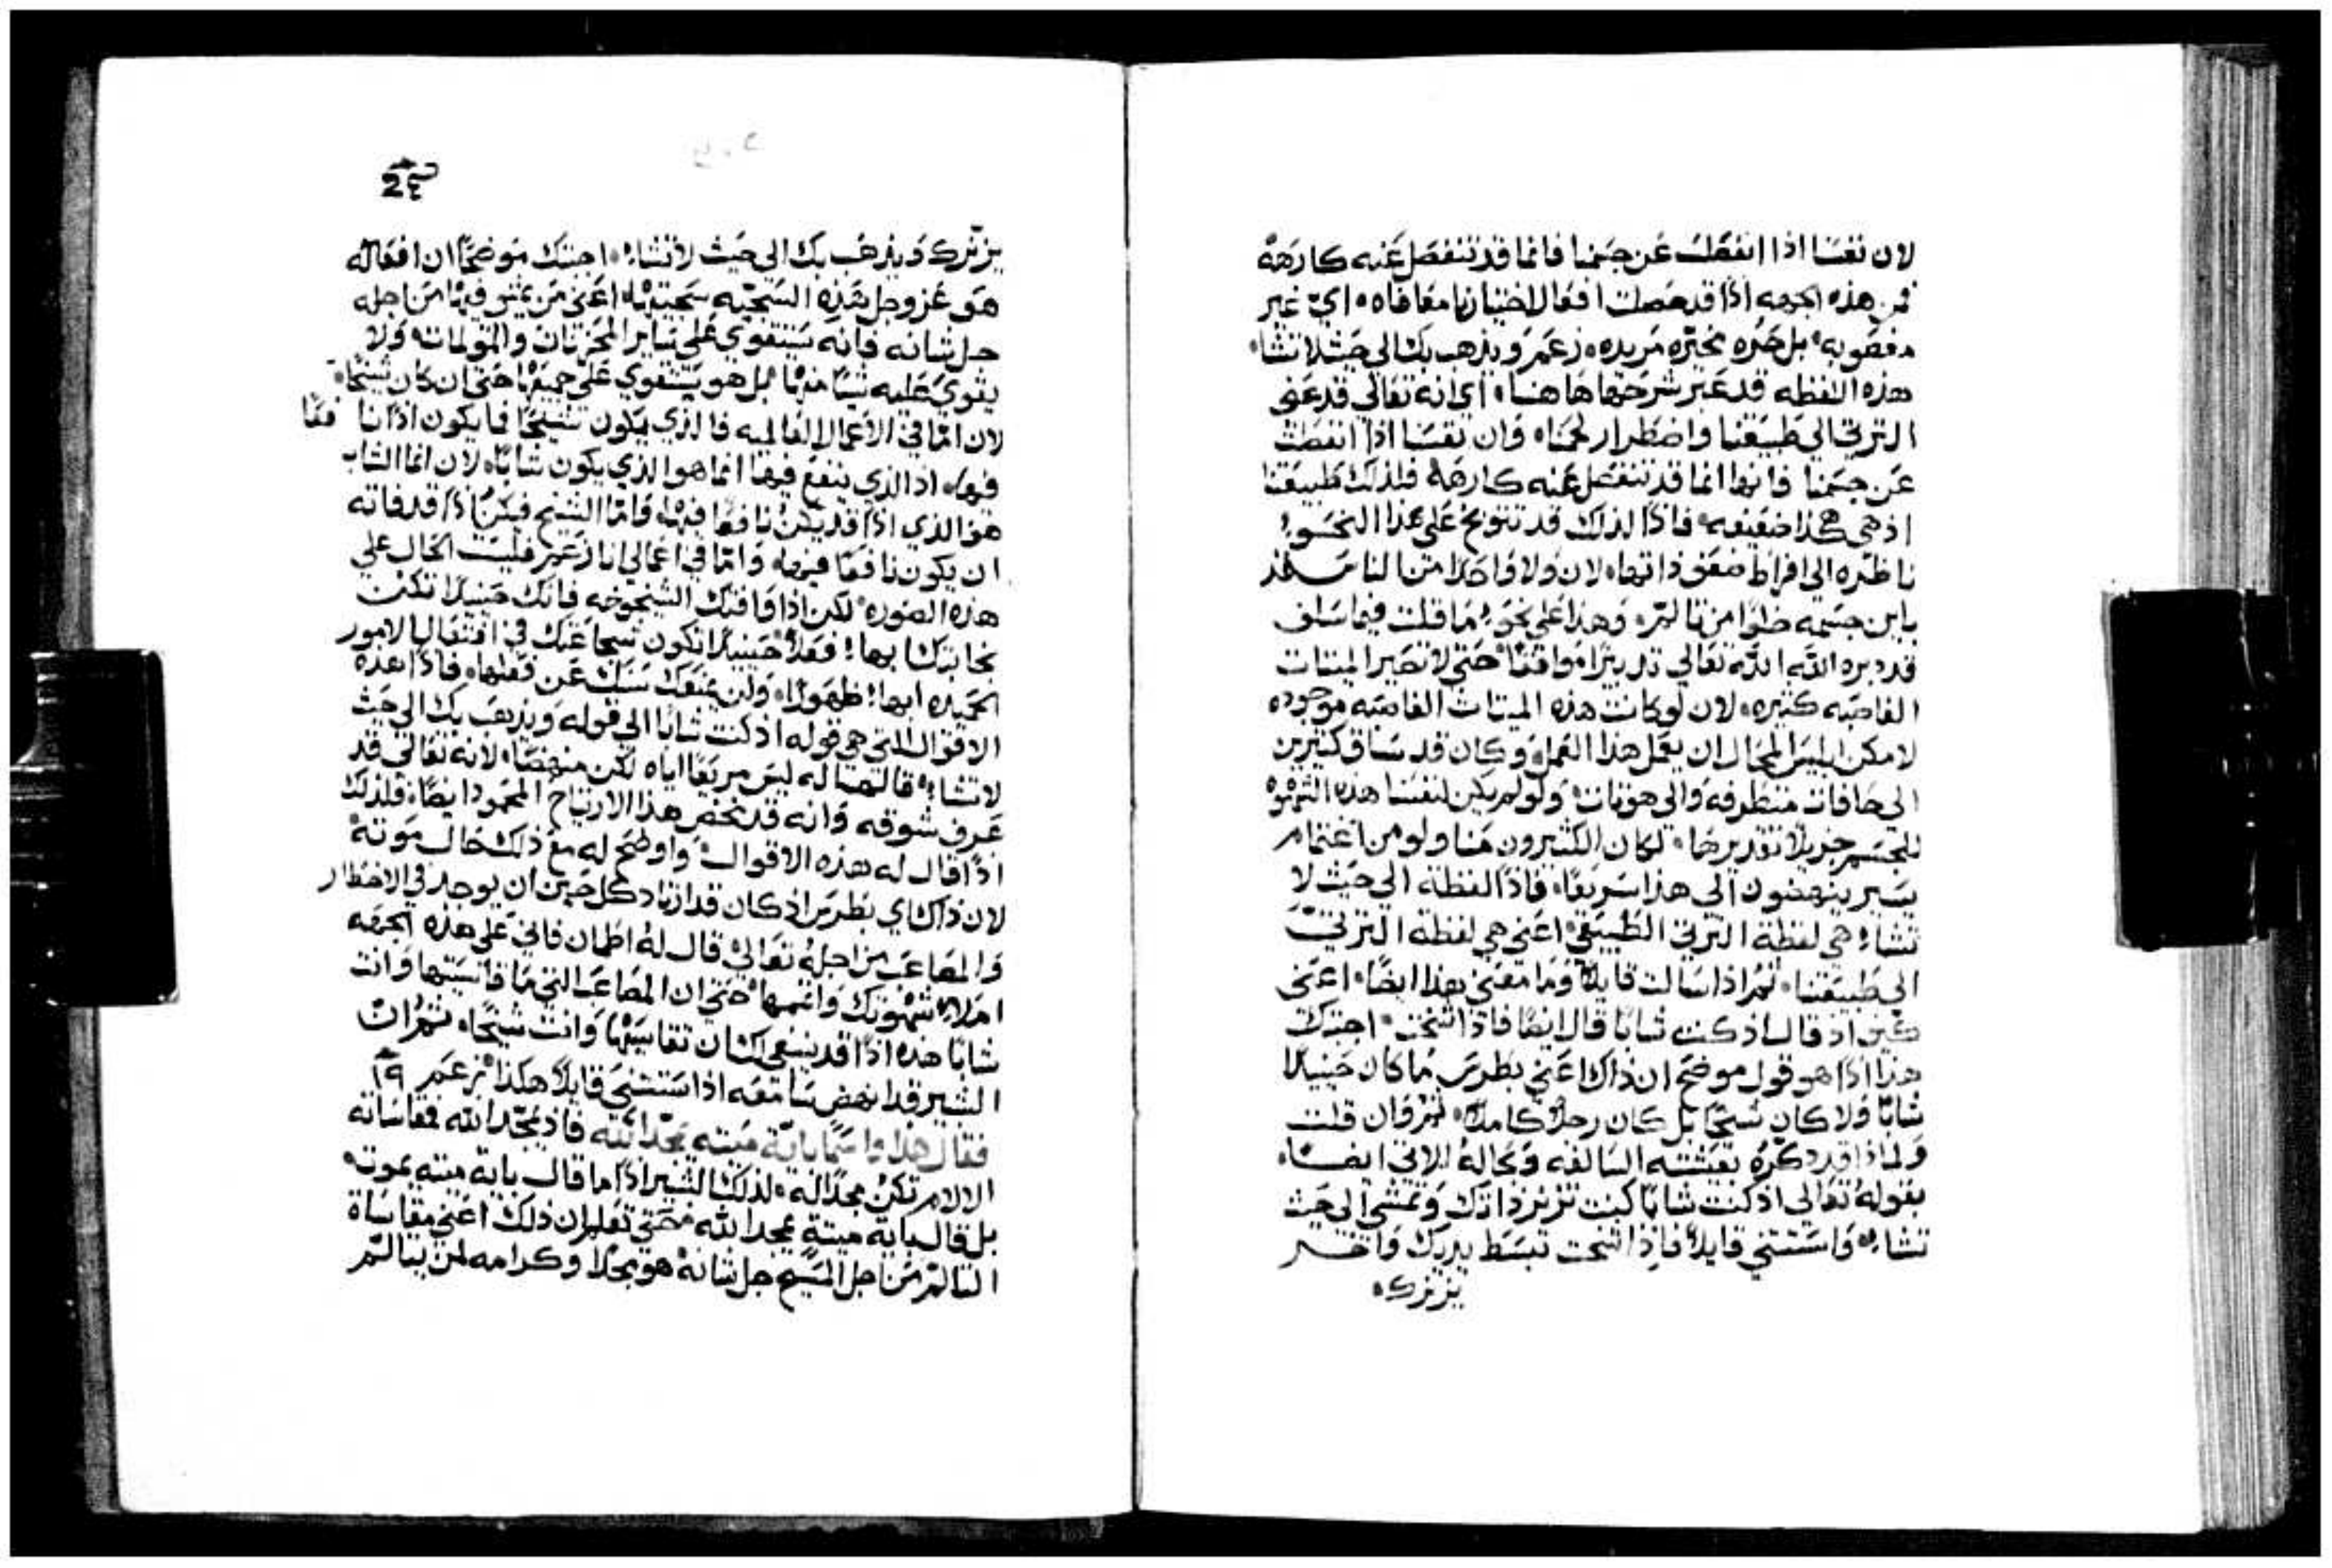 لان نفسنا اذا انفصلت عن جسمنا فانما قد تنفصل عنه كارهة
فمن هذه الجهه اذًا قد حصلت افعال اختيارنا معافاه اي غير
مغصوبه بل حره مخيره مريده زعم ويذهب بك الى حيث لا تشاء
هذه اللفظه قد عبر شرحها هاهنا اي انه تعالى قد عنى
الترتي الى طبيعتنا واضطرار لحمنا وان نفسنا اذا انفصلت
عن جسمنا فانها انما قد تنفصل عنه كارهة فلذلك طبيعتنا
اذ هي هكذا ضعيفه فاذًا لذلك قد تتوبخ على هذا النحو
ناظره الى افراط ضعف ذاتها لان ولا واحدًا منا لنا
باين جسمه خلوًا من تالم وهذا على نحو ما قلت فيما سلف
قد دبره الله تعالى تدبيرًا موافقًا حتى لا تصير الميتات
الغاصبه كثيره لان لو كانت هذه الميتات الغاصبه موجوده
لامكن ابليس المحال ان يعمل هذا العمل وكان قد ساق كثيرين
الى حافات متطرفه والى هوتات ولو لم يكن لنفسنا هذه
للجسم جزيلا تقديرها لكان الكثيرون منا ولو من اغتمام
يسير ينهضون الى هذا سريعًا فاذًا لفظة الى حيث لا
تشاء هي لفظة الترتي الطبيعي اعني هي لفظة الترتي
الى طبيعتنا ثم اذا سالت قايلًا وما معنى هذا ايضًا اعني
كيف اذ قال اذ كنت شابًا قال ايضًا فاذا شخت اجبتك
هذا اذًا هو قول موضح ان ذاك اعني بطرس ما كان حينيذ
شابًا ولا كان شيخًا بل كان رجلًا كاملًا ثم وان قلت
ولماذا قد ذكره بعيشته السالفه وبحاله الاتي ايضًا
بقوله تعالى اذ كنت شابًا كنت تزنر ذاتك وتمشي الى حيث
تشاء واستثنى قايلًا فاذا شخت تبسط يديك واخر
يزنرك
يزنرك ويذهب بك الى حيث لا تشاء اجبتك موضحًا ان افعاله
هو عز وجل هذه السجيه سجيتها اعني من يمشي فيها من اجله
جل شانه فانه يستقوي على ساير المحزنات والمولمات ولا
يقوي عليه شيًا منها بل هو يستقوي على جميعها حتى ان كان شيخًا
لان اما في الاعمال العالميه فالذي يكون شيخًا فما يكون اذًا نافعًا
فيها اذ الذي ينفع فيها انما هو الذي يكون شابًا لان انما الشاب
هو الذي اذًا قد يكن نافعًا فيها واما الشيخ فيكن اذًا قد فاته
ان يكون نافعًا فيها واما في اعمالي انا زعم فليست الحال على
هذه الصوره لكن اذا وافتك الشيخوخه فانك حينيذ تكن
نجابتك ابها فعلًا حينيذ تكون شجاعتك في افتعال الامور
الحميده ابها ظهورًا ولن يمنعك سنك عن فعلها فاذًا هذه
الاقوال التي هي قوله اذ كنت شابًا الى قوله ويذهب بك الى حيث
لا تشاء قالها له ليس مريعًا اياه لكن منهضًا لانه تعالى قد
عرف شوقه وانه قد نحض هذا الارتياح المحمود ايضًا فلذلك
اذًا قال له هذه الاقوال واوضح له مع ذلك حال موته
لان ذاك اي بطرس اذ كان قد ارتاد كل حين ان يوجد في الاخطار
والمصاعب من اجله تعالى قال له اطمان فاني على هذه الجهه
املاء شهوتك واتمها حتى ان المصاعب التي ما قاسيتها وانت
شابًا هذه اذًا قد ينبغي لك ان تقاسيها وانت شيخًا ثم ان
البشير قد انهض سامعه اذا استثنى قايلًا هكذا زعم ١٩
فقال هذا واسمًا باية ميته يمجد الله فاذ يمجد الله فمقاساته
الالام تكن مجدًا له لذلك البشير اذًا ما قال باية ميته يموت
بل قال باية ميتة يمجد الله فحتى تعلم ان ذلك اعني مقاساة
التالم من اجل المسيح جل شانه هو مجدًا وكرامه لمن يتالم